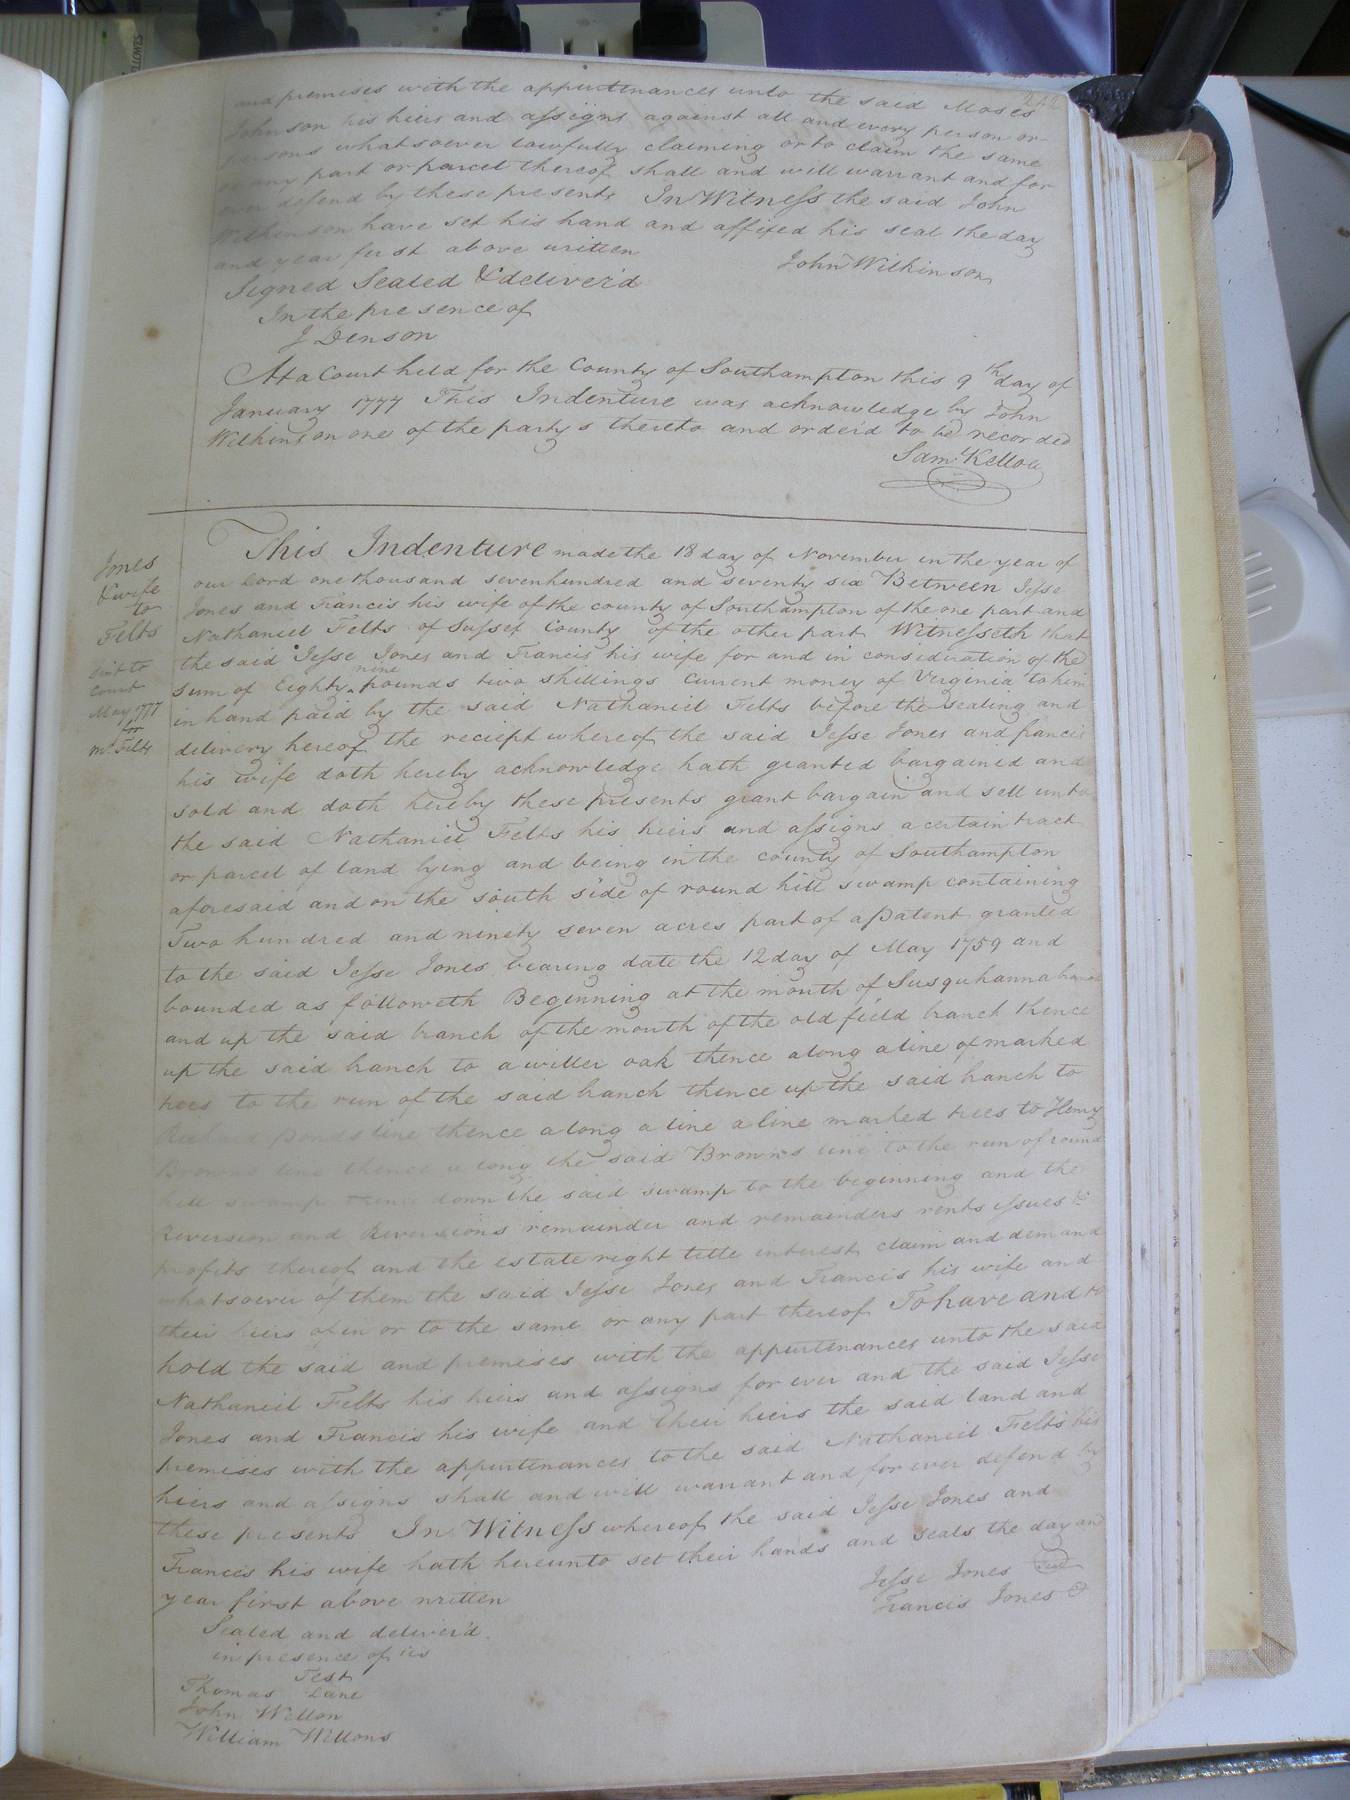 242
and premises with the appurtenances unto the said Moses
Johnson his heirs and assigns against all and every person or
persons whatsoever lawfully claiming or to claim the same
or any part or parcel thereof shall and will warrant and for
ever defend by these presents In Witness the said John
Wilkinson have set his hand and affixed his seal the day
and year first above written
John Wilkinson
Signed Sealed & deliver'd
In the presence of
J Denson
At a Court held for the County of Southampton this 9th day of
January 1777 This Indenture was acknowledge by John
Wilkinson one of the partys thereto and order'd to be recorded
Saml Kello
Jones
& wife
to
Felts
sent to
court
May 1777
for
Mr Felts
This Indenture made the 18 day of November in the year of
our Lord one thousand seven hundred and seventy six Between Jesse
Jones and Francis his wife of the county of Southampton of the one part and
Nathaniel Felts of Sussex County of the other part Witnesseth that
the said Jesse Jones and Francis his wife for and in consideration of the
sum of Eighty nine pounds two shillings current money of Virginia to him
in hand paid by the said Nathaniel Felts before the sealing and
delivery hereof the reciept whereof the said Jesse Jones and francis
his wife doth hereby acknowledge hath granted bargained and
sold and doth hereby these presents grant bargain and sell unto
the said Nathaniel Felts his heirs and assigns a certain tract
or parcel of land lying and being in the county of Southampton
aforesaid and on the south side of round hill swamp containing
Two hundred and ninety seven acres part of a Patent granted
to the said Jesse Jones bearing date the 12 day of May 1759 and
bounded as followeth Beginning at the mouth of Susquhanna
and up the said branch of the mouth of the old field branch thence
up the said branch to a willer oak thence along a line of marked
trees to the run of the said branch thence up the said branch to
Richard Ponds line thence along a line a line marked trees to Henry
Browns line thence along the said Browns line to the run of round
hill swamp thence down the said swamp to the beginning and the
Reversion and Reversions remainder and remainders rents issues &
profits thereof and the estate right title interest claim and demand
whatsoever of them the said Jesse Jones and Francis his wife and
their heirs of in or to the same or any part thereof To have and to
hold the said and premises with the appurtenances unto the said
Nathaniel Felts his heirs and assigns for ever and the said Jesse
Jones and Francis his wife and their heirs the said land and
premises with the appurtenances to the said Nathaniel Felts his
heirs and assigns shall and will warrant and for ever defend by
these presents In Witness whereof the said Jesse Jones and
Francis his wife hath hereunto set their hands and seals the day an
year first above written
Jesse Jones Seal
Francis Jones
Sealed and deliver'd
in presence of us
Test
Thomas Lane
John Wellon
William Wellons